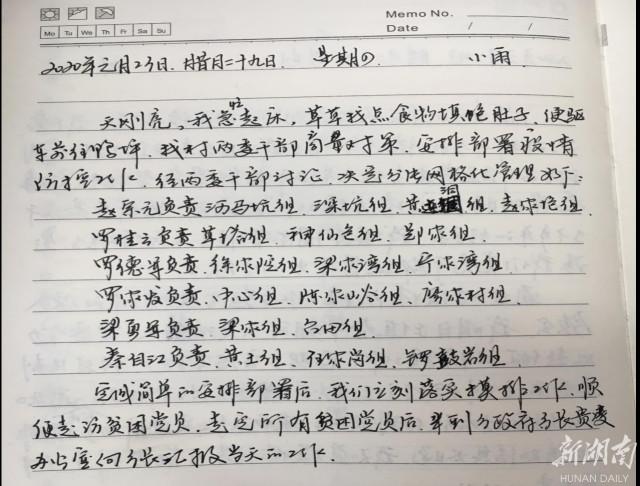 Memo No.
Mo Tu We Th Fr Sa Su
Date / /
2020年元月23日.腊月二十九日. 星期四 小雨
天刚亮,我急忙起床,草草找点食物填饱肚子,便驱
车前往 坪.我村两委干部商量对策.安排部署疫情
防控工作.经两委干部讨论.决定分片网格化管理如下:
赵 元负责河马坑组.深坑组.黄 洞组.赵家 组.
罗桂云负责草 组.神仙 组.郭家组.
罗德军负责.徐家院组.梁家湾组. 家湾组
罗家发负责.中心组.陈家山 组.唐家村组.
梁勇军负责.梁家组.台田组.
秦自江负责.黄土组.任家 组.锣鼓岩组.
完成简单的安排部署后.我们立刻落实摸排工作.顺
便走访贫困党员.走完所有贫困党员后.来到乡政府乡长
办公室向乡长汇报当天的工作.
新湖南
HUNAN DAILY